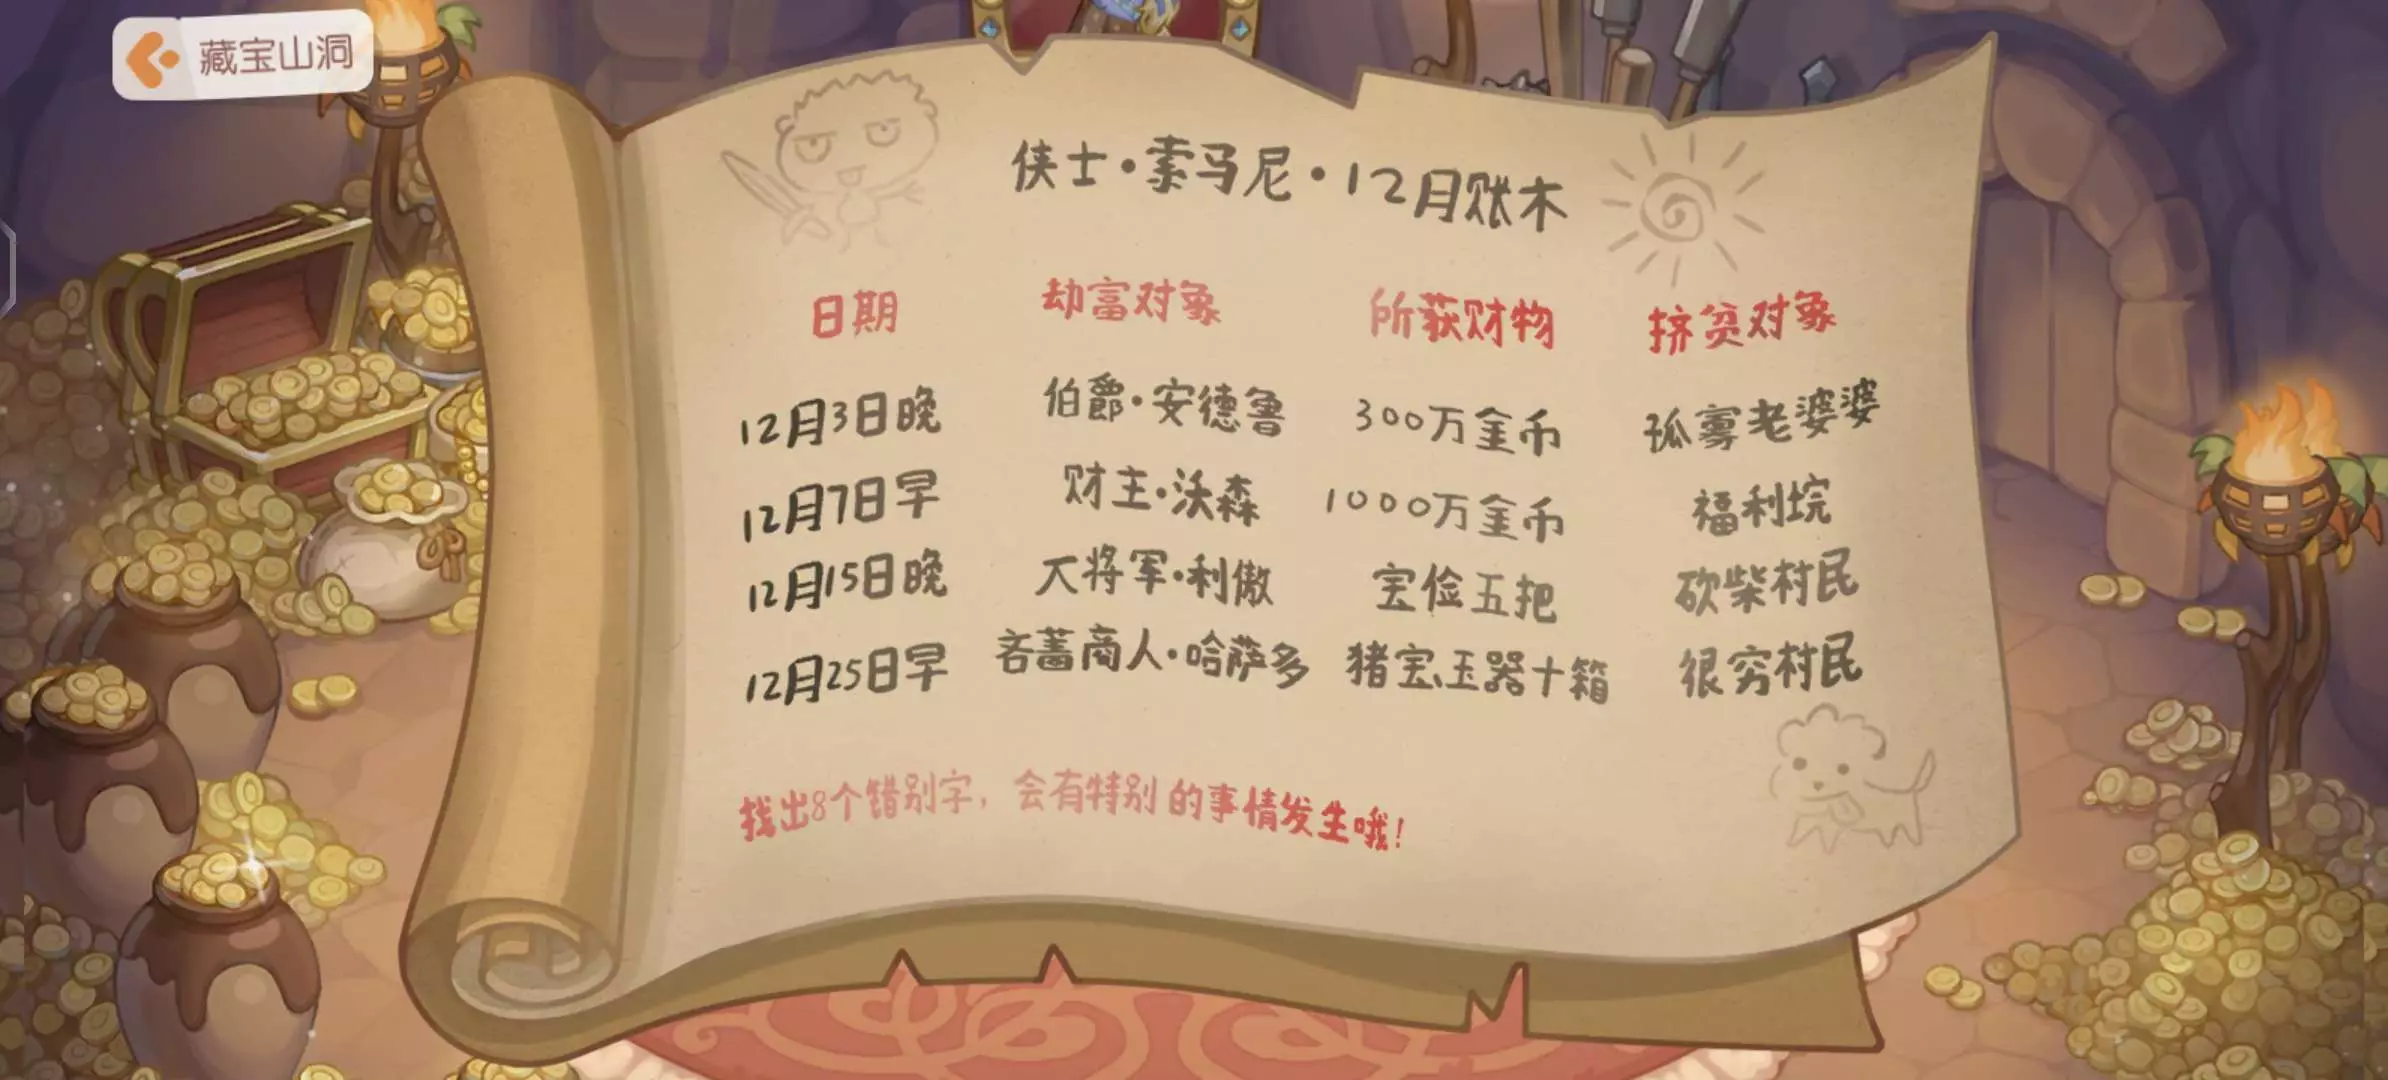 藏宝山洞
侠士·索马尼·12月账木
日期 劫富对象 所获财物 挤贫对象
12月3日晚 伯爵·安德鲁 300万金币 孤寡老婆婆
12月7日早 财主·沃森 1000万金币 福利垸
12月15日晚 大将军·利傲 宝俭五把 砍柴村民
12月25日早 吝蔷商人·哈萨多 猪宝玉器十箱 很穷村民
找出8个错别字，会有特别的事情发生哦！